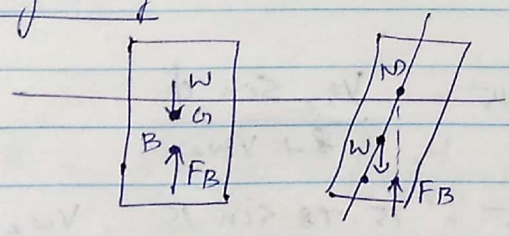 W
G
B
FB
M
W
FB